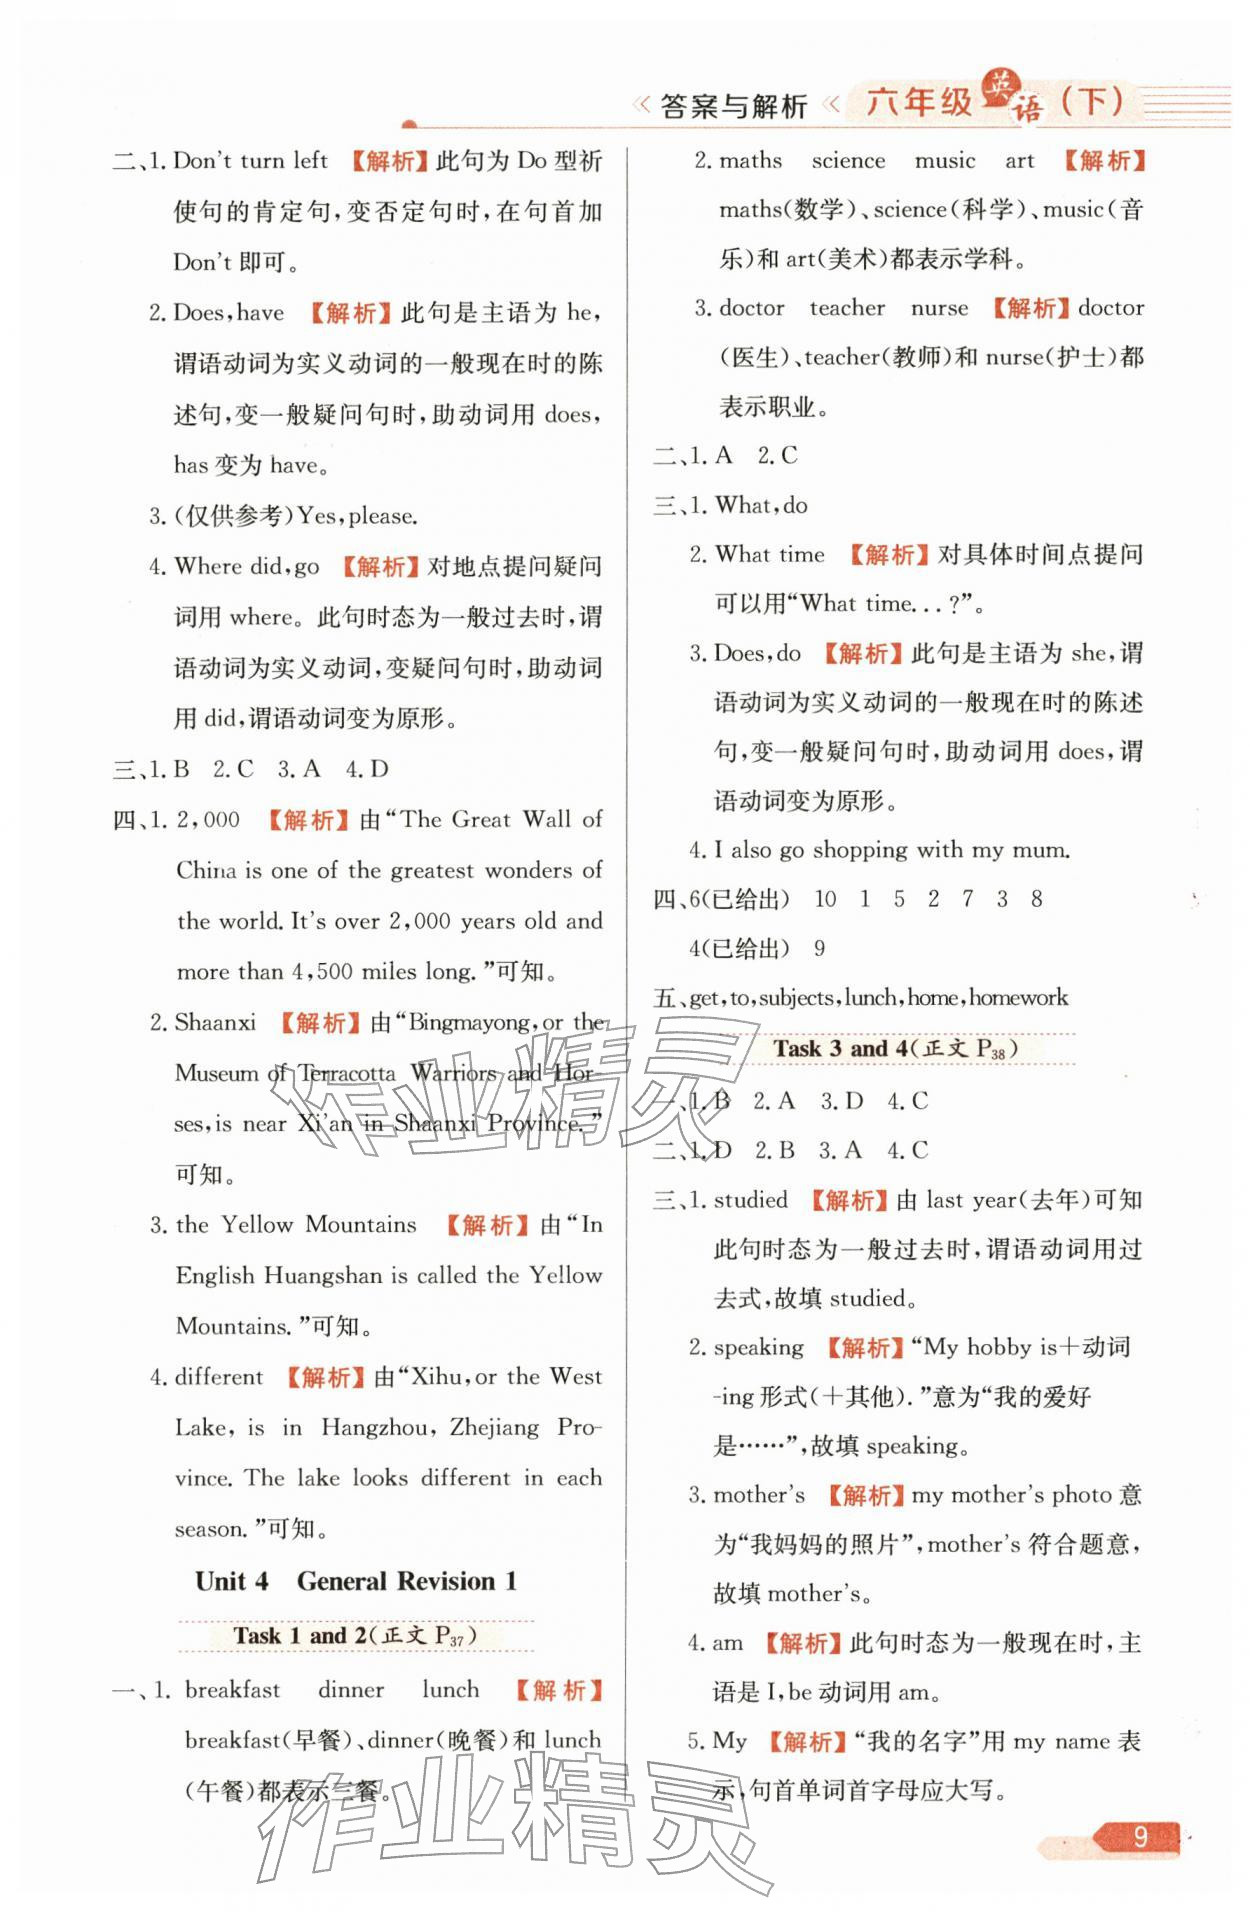 《 答案与解析 《 六年级英语(下)
二、1. Don't turn left 【解析】此句为 Do 型祈
使句的肯定句,变否定句时,在句首加
Don't 即可。
2. Does,have 【解析】此句是主语为 he,
谓语动词为实义动词的一般现在时的陈
述句,变一般疑问句时,助动词用 does,
has 变为 have。
3. (仅供参考)Yes,please.
4. Where did,go 【解析】对地点提问疑问
词用 where。此句时态为一般过去时,谓
语动词为实义动词,变疑问句时,助动词
用 did,谓语动词变为原形。
三、1. B 2. C 3. A 4. D
四、1. 2,000 【解析】由“The Great Wall of
China is one of the greatest wonders of
the world. It's over 2,000 years old and
more than 4,500 miles long. ”可知。
2. Shaanxi 【解析】由“Bingmayong,or the
Museum of Terracotta Warriors and Hor-
ses,is near Xi'an in Shaanxi Province. ”
可知。
3. the Yellow Mountains 【解析】由“In
English Huangshan is called the Yellow
Mountains. ”可知。
4. different 【解析】由“Xihu,or the West
Lake, is in Hangzhou, Zhejiang Pro-
vince. The lake looks different in each
season. ”可知。
Unit 4 General Revision 1
Task 1 and 2(正文 P37)
一、1. breakfast dinner lunch 【解析】
breakfast(早餐)、dinner(晚餐)和 lunch
(午餐)都表示三餐。
2. maths science music art 【解析】
maths(数学)、science(科学)、music(音
乐)和 art(美术)都表示学科。
3. doctor teacher nurse 【解析】doctor
(医生)、teacher(教师)和 nurse(护士)都
表示职业。
二、1. A 2. C
三、1. What,do
2. What time 【解析】对具体时间点提问
可以用“What time...?”。
3. Does,do 【解析】此句是主语为 she,谓
语动词为实义动词的一般现在时的陈述
句,变一般疑问句时,助动词用 does,谓
语动词变为原形。
4. I also go shopping with my mum.
四、6(已给出) 10 1 5 2 7 3 8
4(已给出) 9
五、get,to,subjects,lunch,home,homework
Task 3 and 4(正文 P38)
一、1. B 2. A 3. D 4. C
二、1. D 2. B 3. A 4. C
三、1. studied 【解析】由 last year(去年)可知
此句时态为一般过去时,谓语动词用过
去式,故填 studied。
2. speaking 【解析】“My hobby is+动词
-ing 形式(+其他). ”意为“我的爱好
是……”,故填 speaking。
3. mother's 【解析】my mother's photo 意
为“我妈妈的照片”,mother's 符合题意,
故填 mother's。
4. am 【解析】此句时态为一般现在时,主
语是 I,be 动词用 am。
5. My 【解析】“我的名字”用 my name 表
示,句首单词首字母应大写。
9
作业精灵
作业精灵